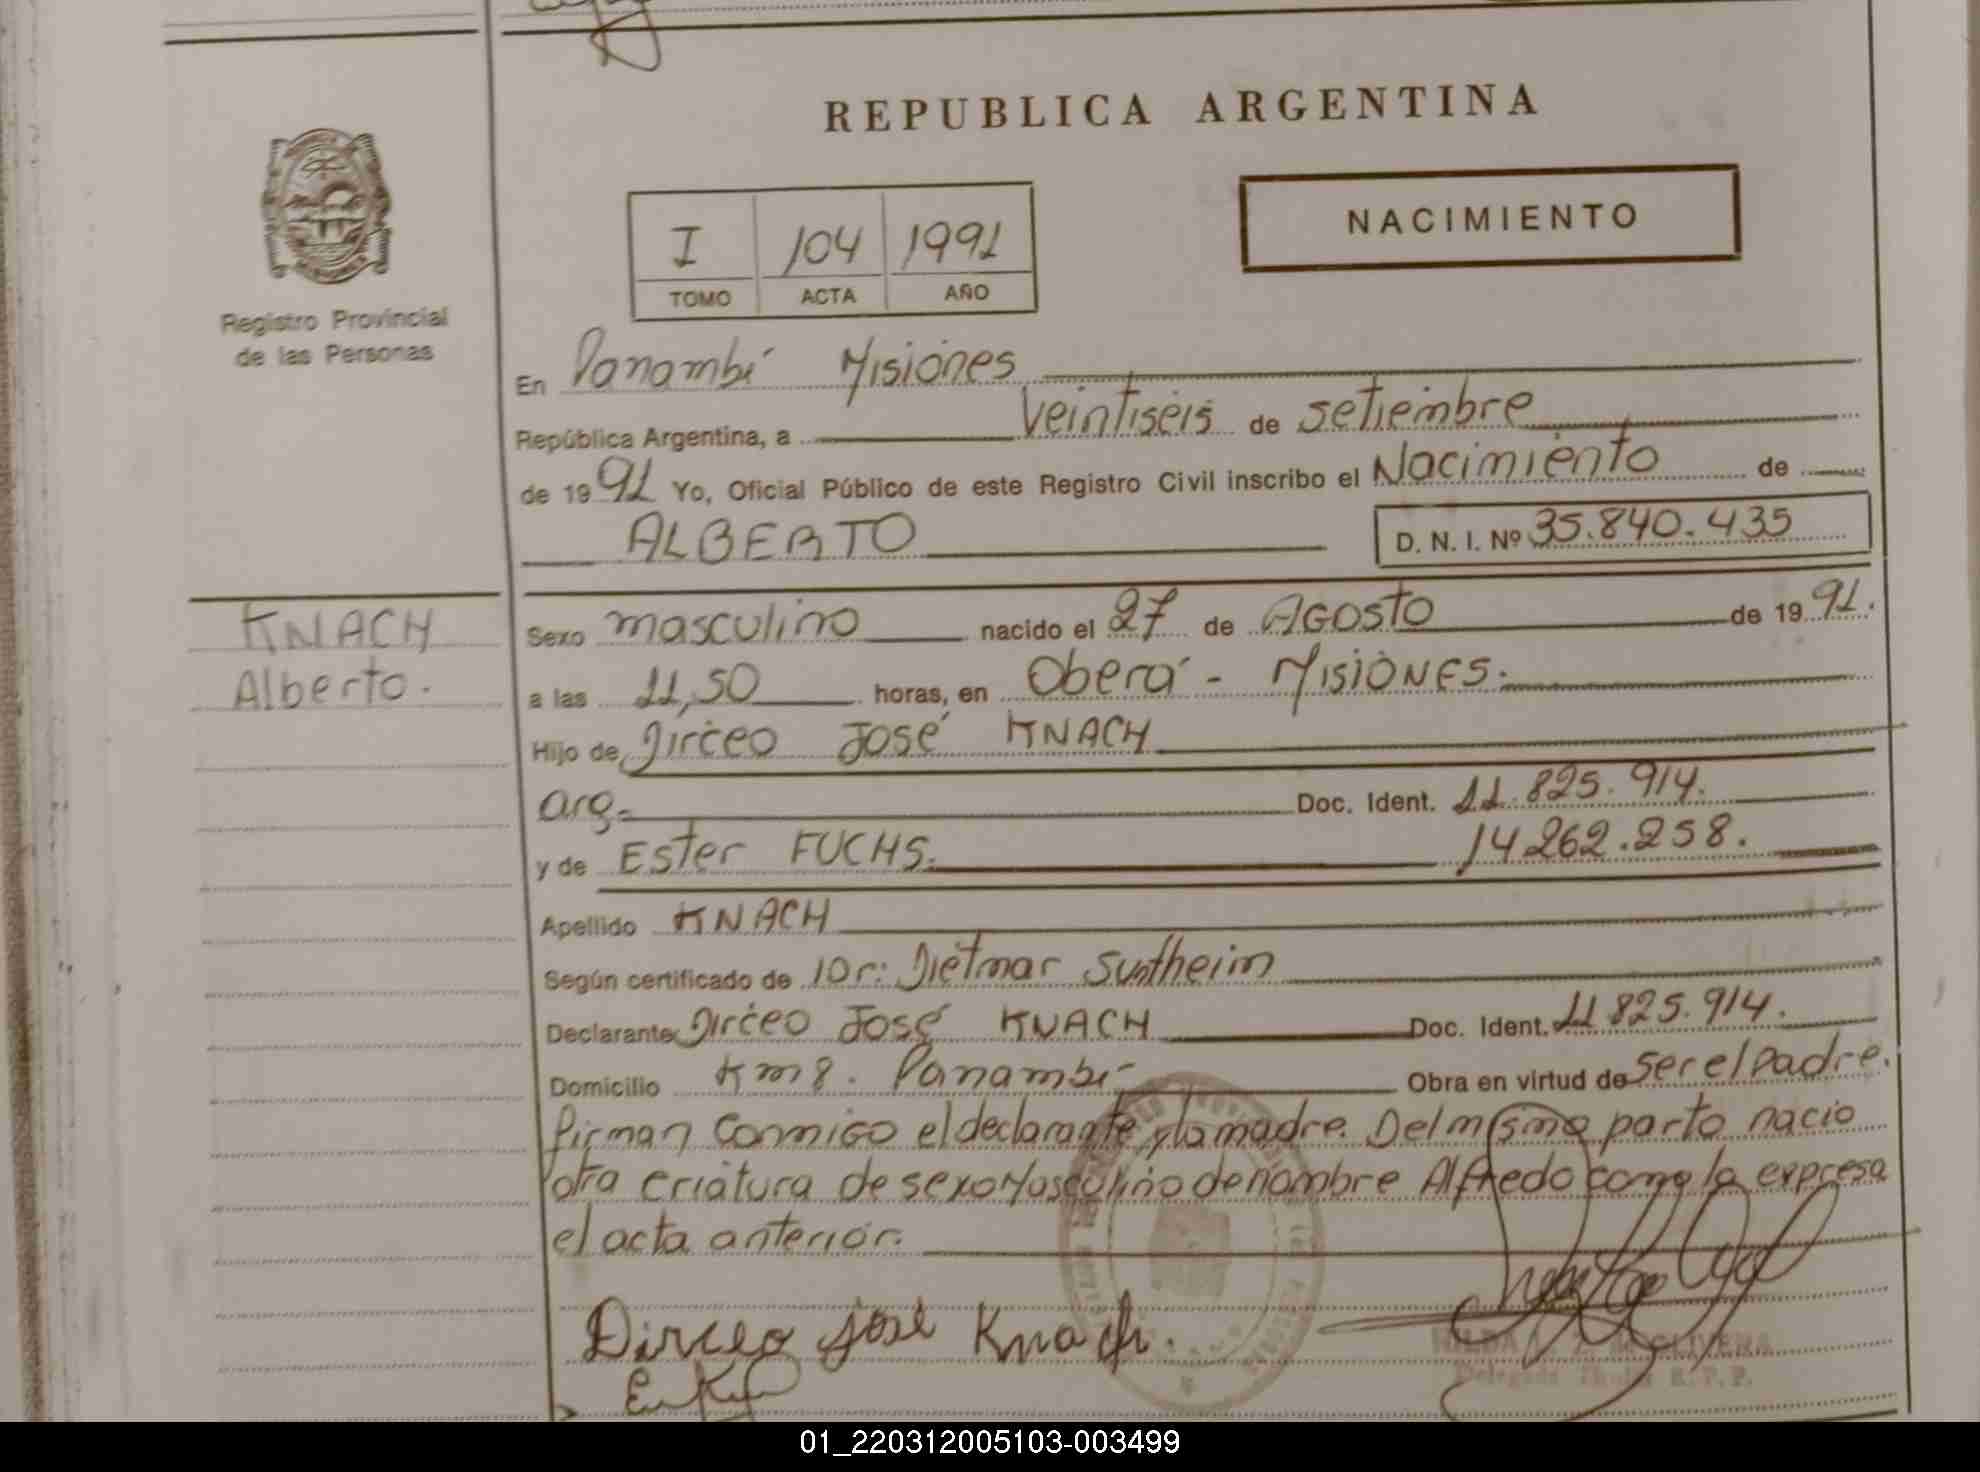 REPUBLICA ARGENTINA
Registro Provincial
de las Personas
I 104 1991
TOMO ACTA AÑO
NACIMIENTO
En Panambí Misiones
República Argentina, a veintiseis de setiembre
de 1991 Yo, Oficial Público de este Registro Civil inscribo el Nacimiento de
ALBERTO D. N. I. Nº 35.840.435
KNACH
Alberto.
Sexo masculino nacido el 27 de AGOSTO de 1991.
a las 11,50 horas, en Oberá - MISIONES.
Hijo de Dirceo José KNACH
arg. Doc. Ident. 11.825.914.
y de Ester FUCHS. 14.262.258.
Apellido KNACH
Según certificado de Dr: Dietmar Suntheim
Declarante Dirceo José KNACH Doc. Ident. 11.825.914.
Domicilio Km 8. Panambí Obra en virtud de ser el Padre.
firman conmigo el declarante y la madre. Del mismo parto nacio
otra criatura de sexo Masculino de nombre Alfredo como lo expresa
el acta anterior.
Dirceo José Knach.
01_220312005103-003499